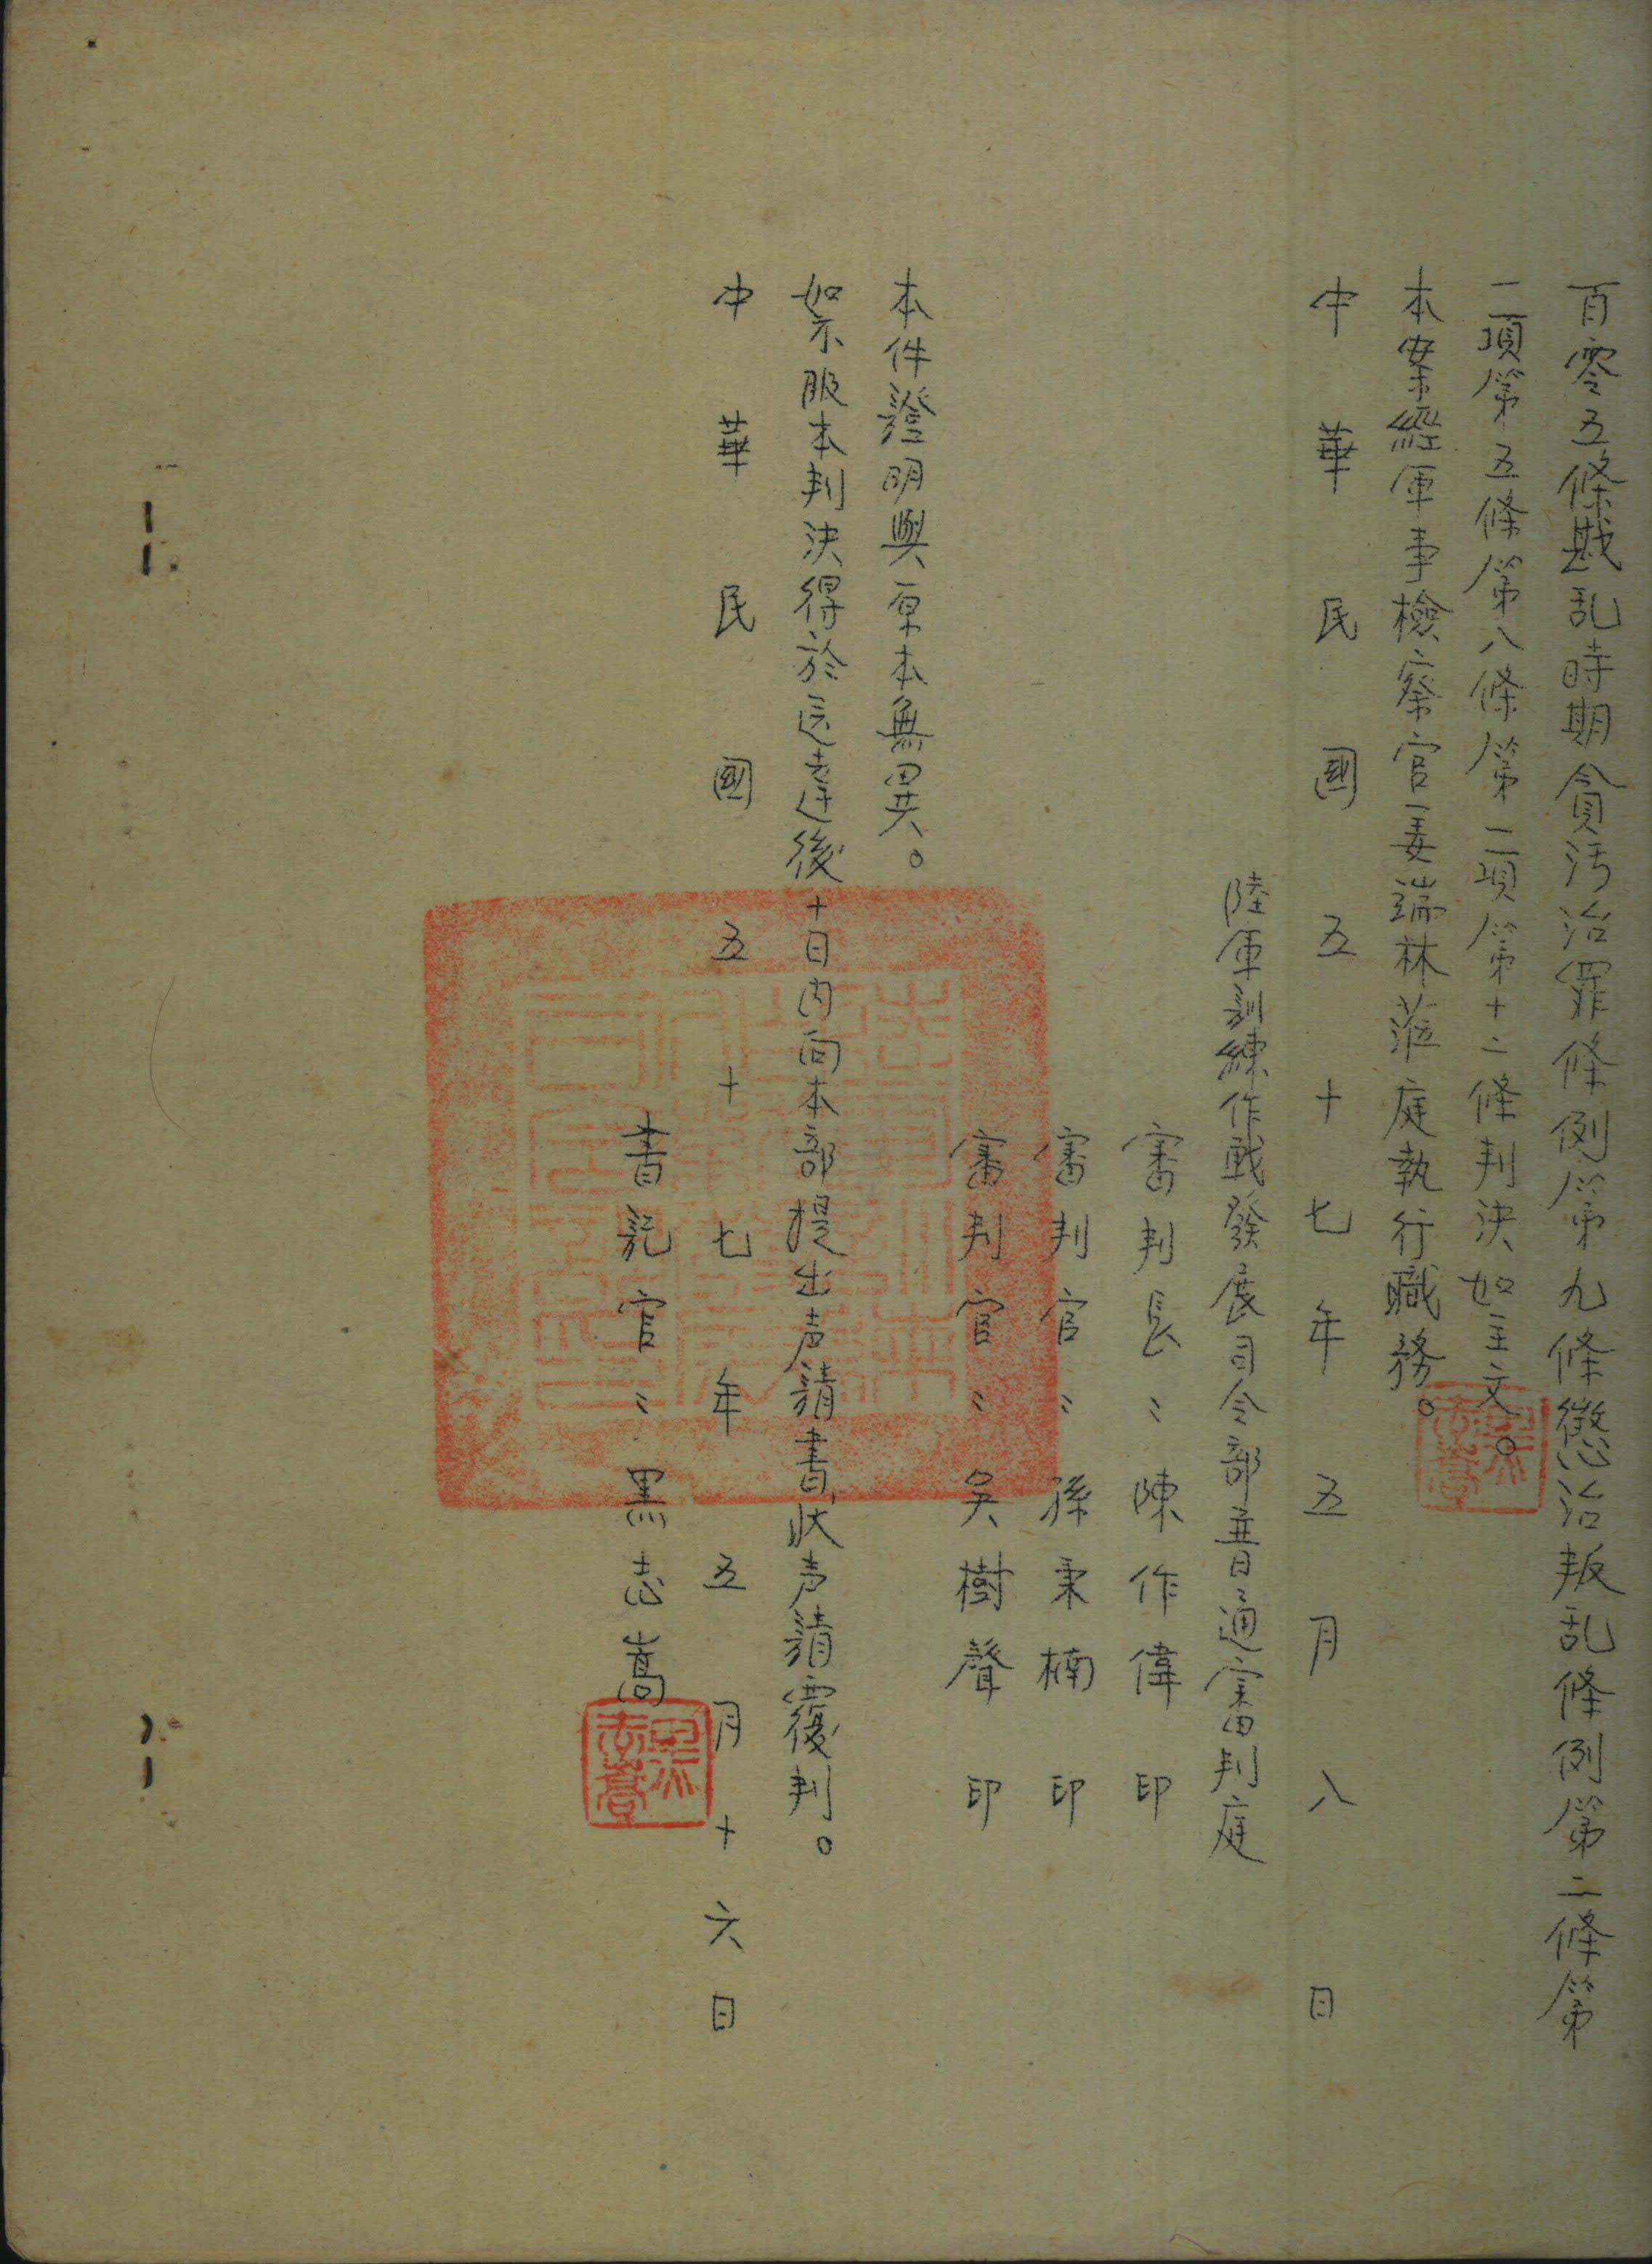 百零五條戡乱時期貪污治罪條例第九條懲治叛乱條例第二條第
二項第五條第八條第二項第十二條判決如主文。
本案經軍事檢察官姜端林蒞庭執行職務。
中華民國五十七年五月八日
陸軍訓練作戰發展司令部普通審判庭
審判長:陳作偉印
審判官:孫秉楠印
審判官:吳樹聲印
本件證明與原本無異。
如不服本判決得於送達後十日內向本部提出声請書狀声請覆判。
中華民國五十七年五月十六日
書記官:黑志嵩
黑志嵩
黑志嵩